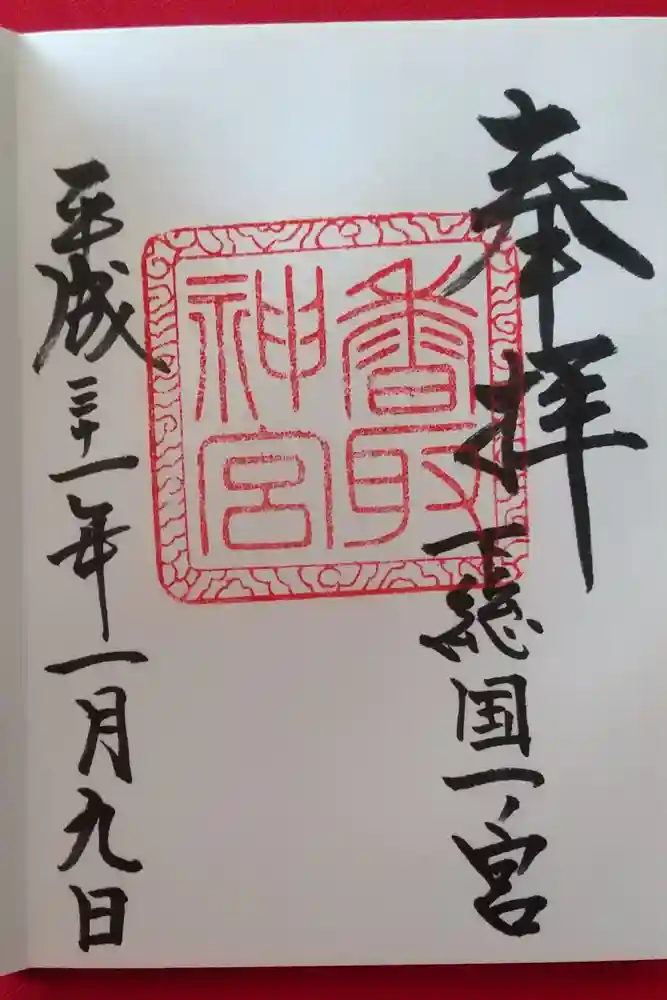 奉拝
下總国一ノ宮
香取
神宮
平成三十一年一月九日